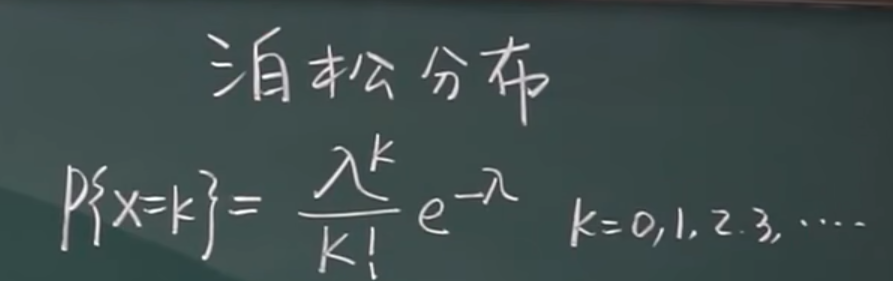 泊松分布
P{X=k}= λ^k/k! e^-λ k=0,1,2.3,····